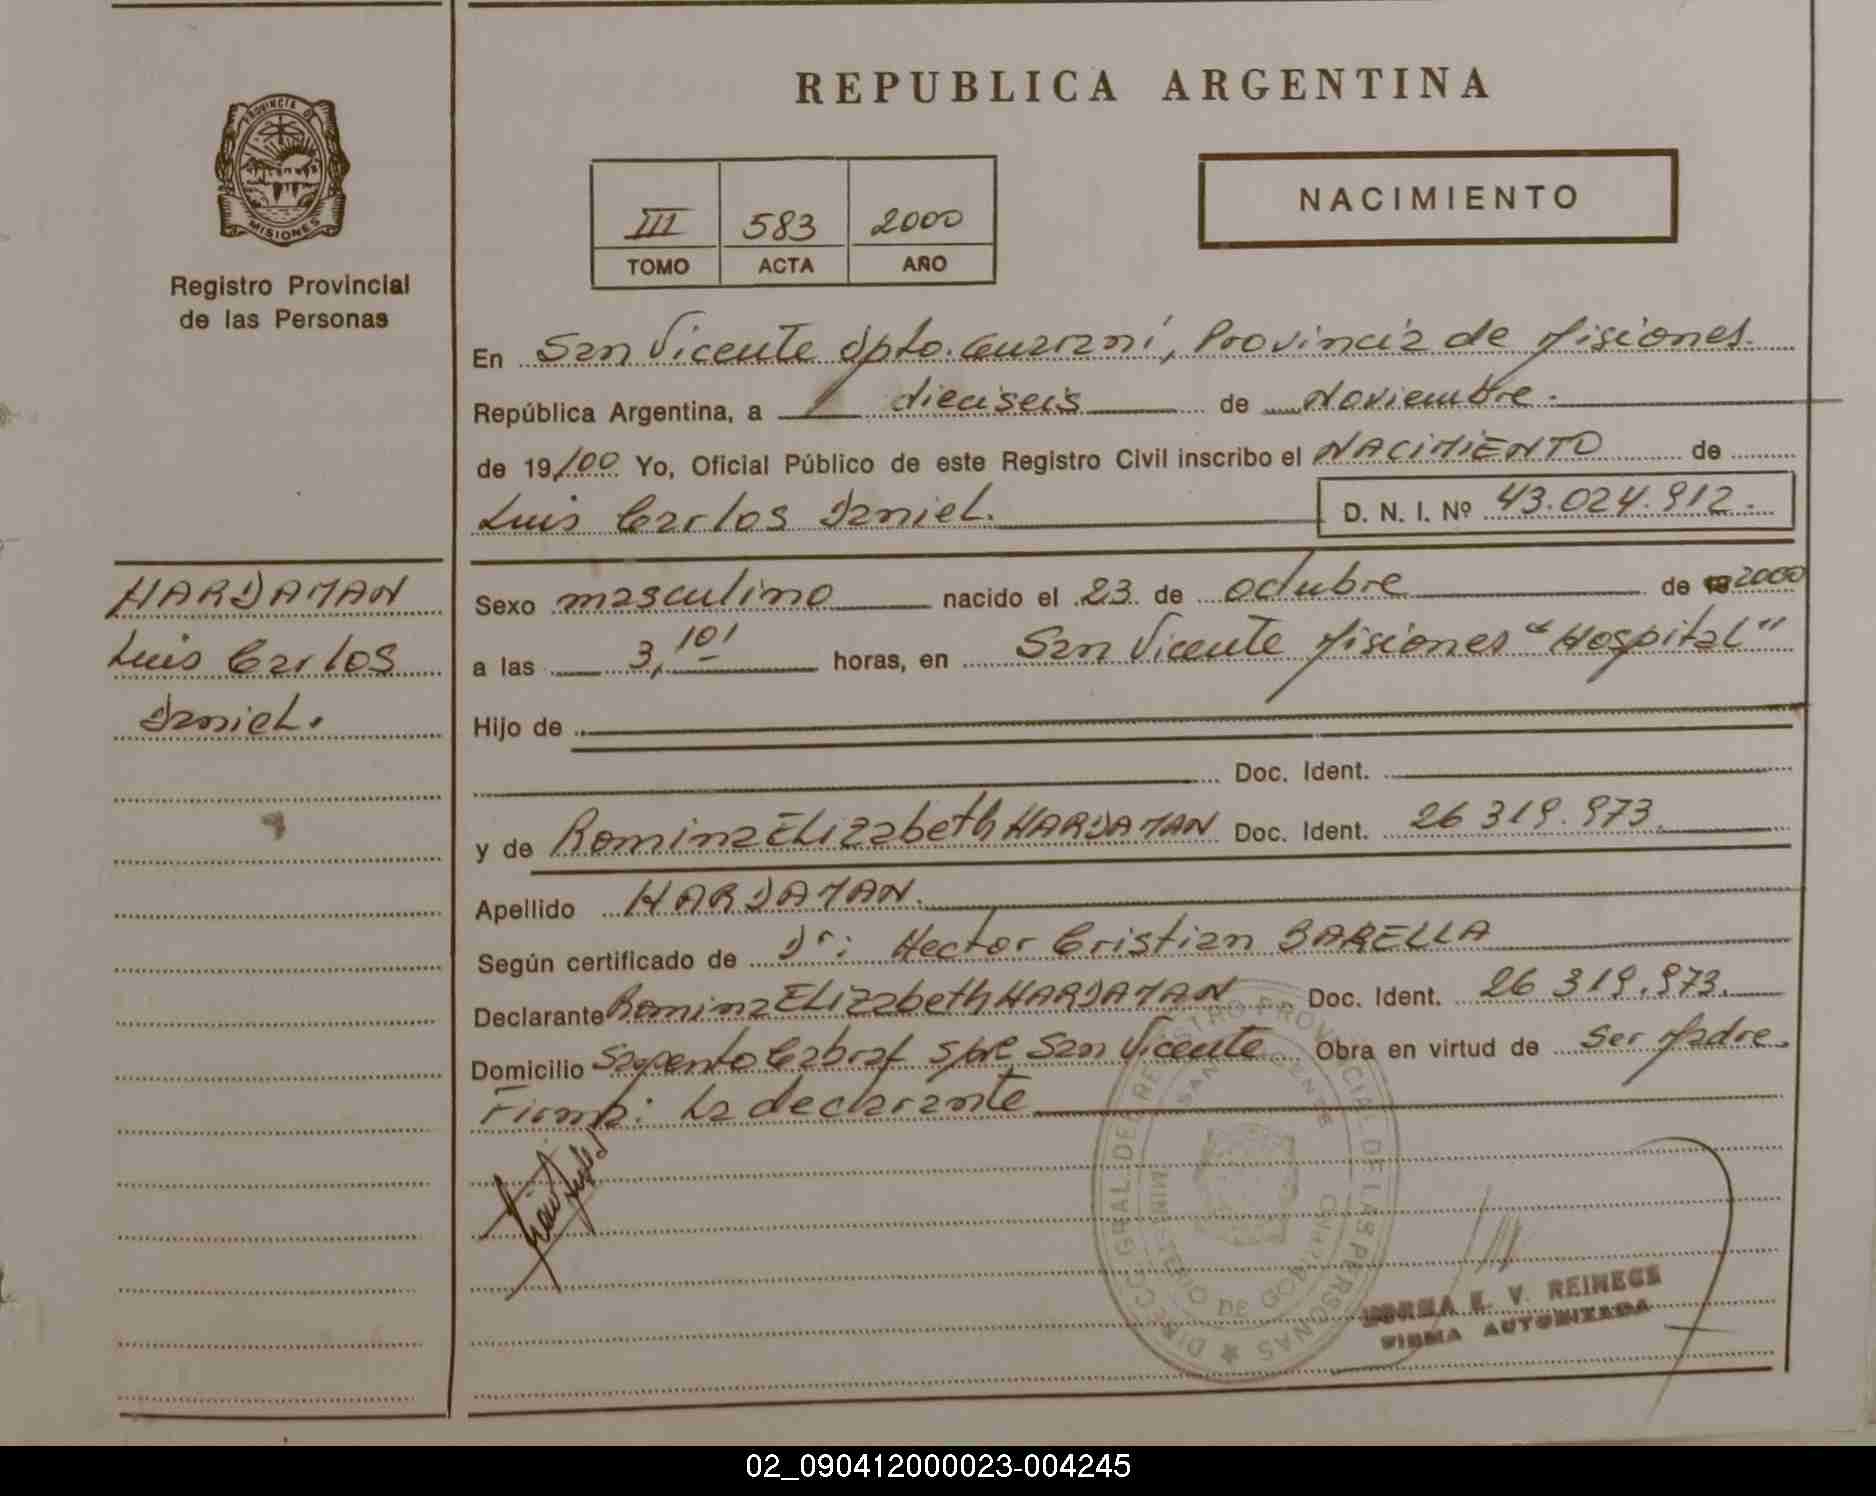 REPUBLICA ARGENTINA
PROVINCIA DE
MISIONES
Registro Provincial
de las Personas
III 583 2000
TOMO ACTA AÑO
NACIMIENTO
En San Vicente Dpto. Guaraní, Provincia de Misiones.
República Argentina, a dieciseis de Noviembre.
de 19/00 Yo, Oficial Público de este Registro Civil inscribo el NACIMIENTO de
Luis Carlos Daniel. D. N. I. Nº 43.024.912.
HARDAMAN
Luis Carlos
Daniel.
Sexo masculino nacido el 23 de octubre de 2000
a las 3,10' horas, en San Vicente Misiones "Hospital"
Hijo de
Doc. Ident.
y de Romina Elizabeth HARDAMAN Doc. Ident. 26 319.973.
Apellido HARDAMAN.
Según certificado de Dr: Hector Cristian BARELLA
Declarante Romina Elizabeth HARDAMAN Doc. Ident. 26 319.973.
Domicilio Sargento Cabral s/nº San Vicente Obra en virtud de ser Madre.
Firma: La declarante
DIRECC. GRAL. DEL REGISTRO PROVINCIAL DE LAS PERSONAS
MINISTERIO DE GOBIERNO
SAN VICENTE
NORMA E. V. REINECK
FIRMA AUTORIZADA
02_090412000023-004245